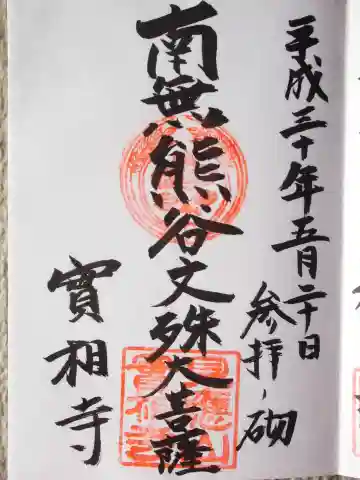 平成三十年五月二十日
参拝之砌
南無熊谷文殊大菩薩
實相寺